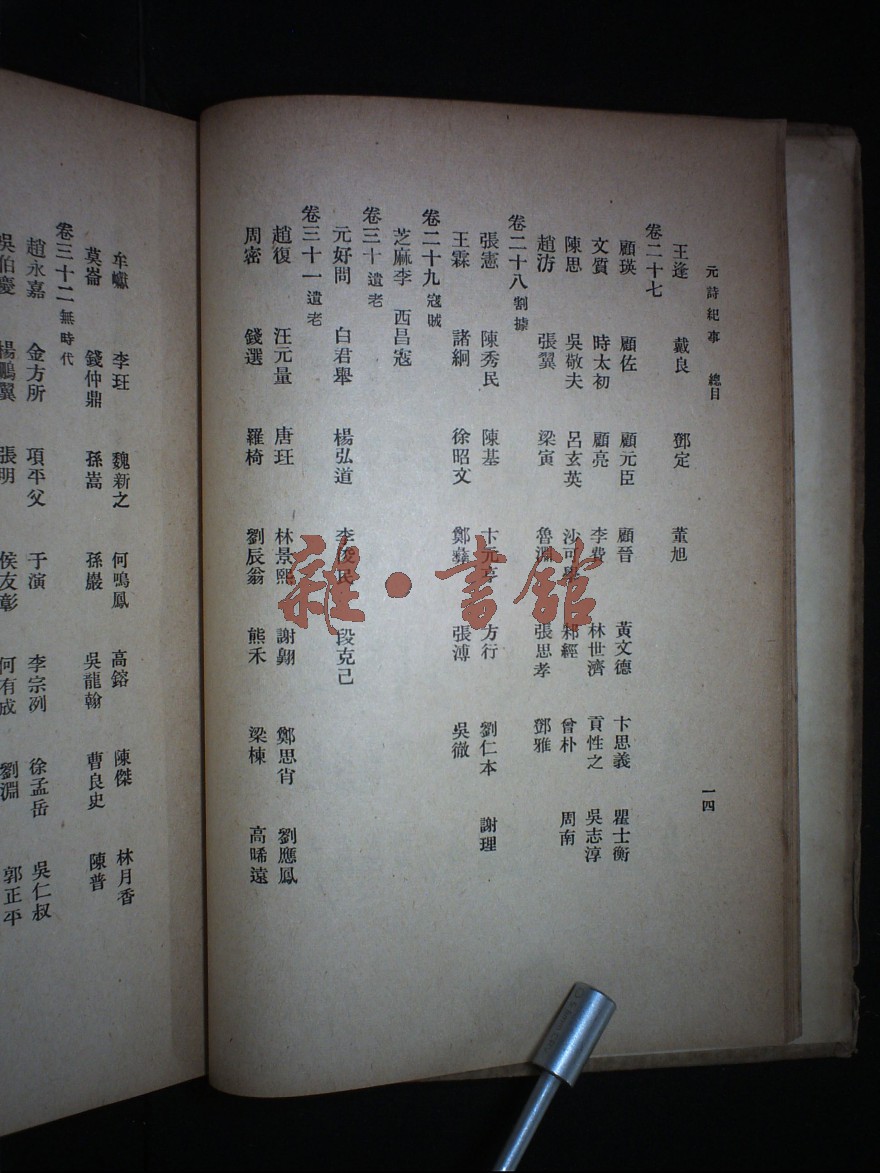 元詩紀事　總目　一四
王逢　戴良　鄧定　董旭
卷二十七
顧瑛　顧佐　顧元臣　顧晉　黃文德　卞思義　瞿士衡
文質　時太初　顧亮　李費　林世濟　貢性之　吳志淳
陳思　吳敬夫　呂玄英　沙可學　邾經　曾朴　周南
趙汸　張翼　梁寅　魯淵　張思孝　鄧雅
卷二十八割據
張憲　陳秀民　陳基　卞元亨　方行　劉仁本　謝理
王霖　諸綱　徐昭文　鄭彝　張溥　吳徹
卷二十九寇賊
芝麻李　西昌寇
卷三十遺老
元好問　白君舉　楊弘道　李俊民　段克己
卷三十一遺老
趙復　汪元量　唐玨　林景熙　謝翱　鄭思肖　劉應鳳
周密　錢選　羅椅　劉辰翁　熊禾　梁棟　高晞遠
牟巘　李玨　魏新之　何鳴鳳　高鎔　陳傑　林月香
莫崙　錢仲鼎　孫嵩　孫巖　吳龍翰　曹良史　陳普
卷三十二無時代
趙永嘉　金方所　項平父　于演　李宗冽　徐孟岳　吳仁叔
吳伯慶　楊鵬翼　張明　侯友彰　何有成　劉淵　郭正平
雜·書館